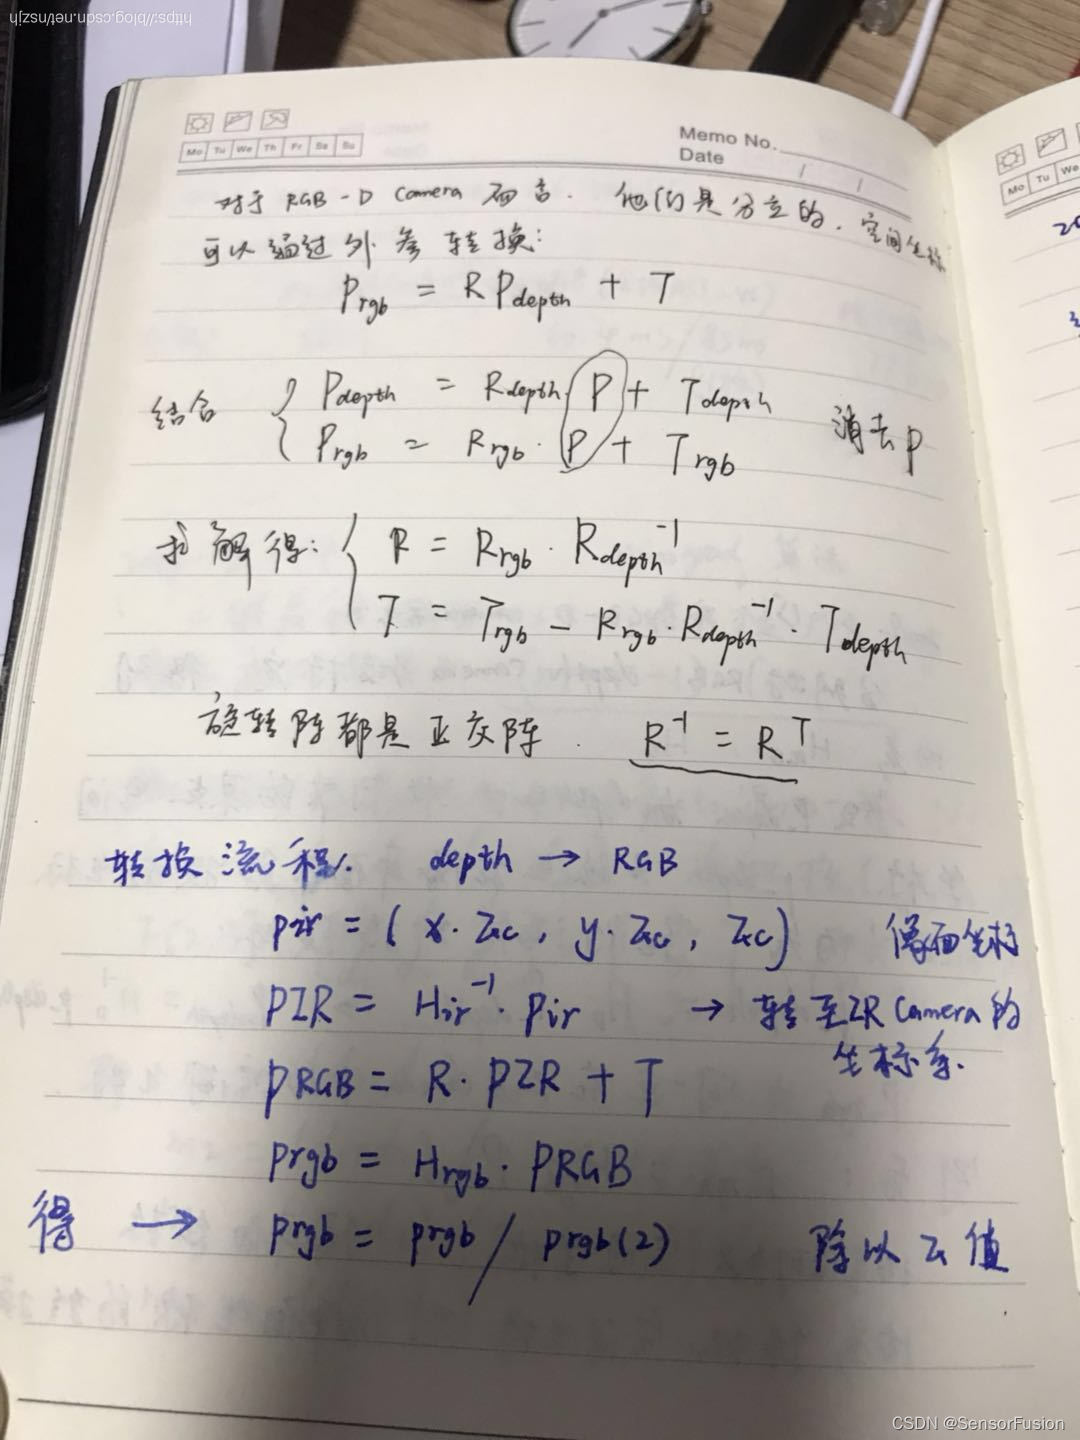 https://blog.csdn.net/unszjh
Mo Tu We Th Fr Sa Su
Memo No.
Date / /
Mo Tu We
对于 RGB-D Camera 而言. 他们是分立的, 空间坐标
可以通过外参转换:
Prgb = R Pdepth + T
结合 { Pdepth = Rdepth P + Tdepth
Prgb = Rrgb · P + Trgb 消去 P
求解得: { R = Rrgb · Rdepth⁻¹
T = Trgb − Rrgb · Rdepth⁻¹ · Tdepth
旋转阵都是正交阵. R⁻¹ = Rᵀ
转换流程. depth → RGB
pir = ( x·Zc, y·Zc, Zc) 像面坐标
PIR = Hir⁻¹ · pir → 转至IR Camera 的
坐标系.
PRGB = R · PIR + T
prgb = Hrgb · PRGB
得 → prgb = prgb / prgb(2) 除以 Z 值
CSDN @SensorFusion